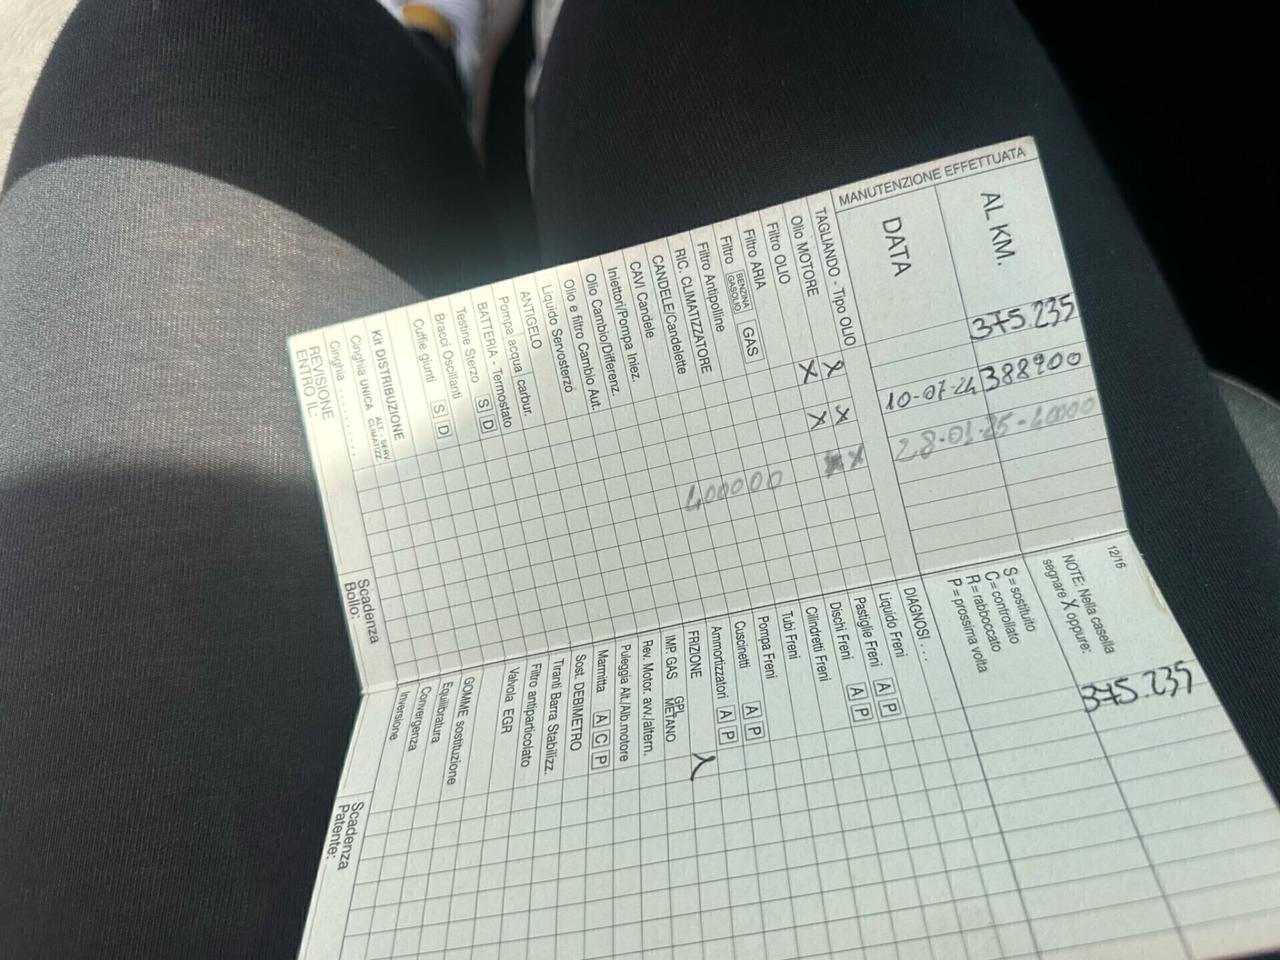 MANUTENZIONE EFFETTUATA
AL KM.
375.235
388900
DATA
10-07-24
TAGLIANDO - Tipo OLIO X X X
Olio MOTORE X X X
Filtro OLIO
Filtro ARIA
Filtro BENZINA GASOLIO GAS
Filtro Antipolline
RIC. CLIMATIZZATORE
CANDELE/Candelette
CAVI Candele
Iniettori/Pompa Iniez.
Olio Cambio/Differenz.
Olio e filtro Cambio Aut.
Liquido Servosterzo
ANTIGELO
Pompa acqua carbur.
BATTERIA - Termostato
Testine Sterzo S D
Bracci Oscillanti
Cuffie giunti S D
Kit DISTRIBUZIONE
Cinghia UNICA ALT. - SERV. CLIMATIZZ.
Cinghia ..........
REVISIONE
ENTRO IL:
Scadenza
Bollo:
12/16
NOTE: Nella casella
segnare X oppure:
S = sostituito
C = controllato
R = rabboccato
P = prossima volta
375.235
DIAGNOSI ...
Liquido Freni
Pastiglie Freni A P
Dischi Freni A P
Cilindretti Freni
Tubi Freni
Pompa Freni
Cuscinetti A P
Ammortizzatori A P
FRIZIONE X
IMP. GAS GPL METANO
Rev. Motor. avv./altern.
Puleggia Alt./Alb.motore
Marmitta A C P
Sost. DEBIMETRO
Tiranti Barra Stabilizz.
Filtro antiparticolato
Valvola EGR
GOMME sostituzione
Equilibratura
Convergenza
Inversione
Scadenza
Patente: